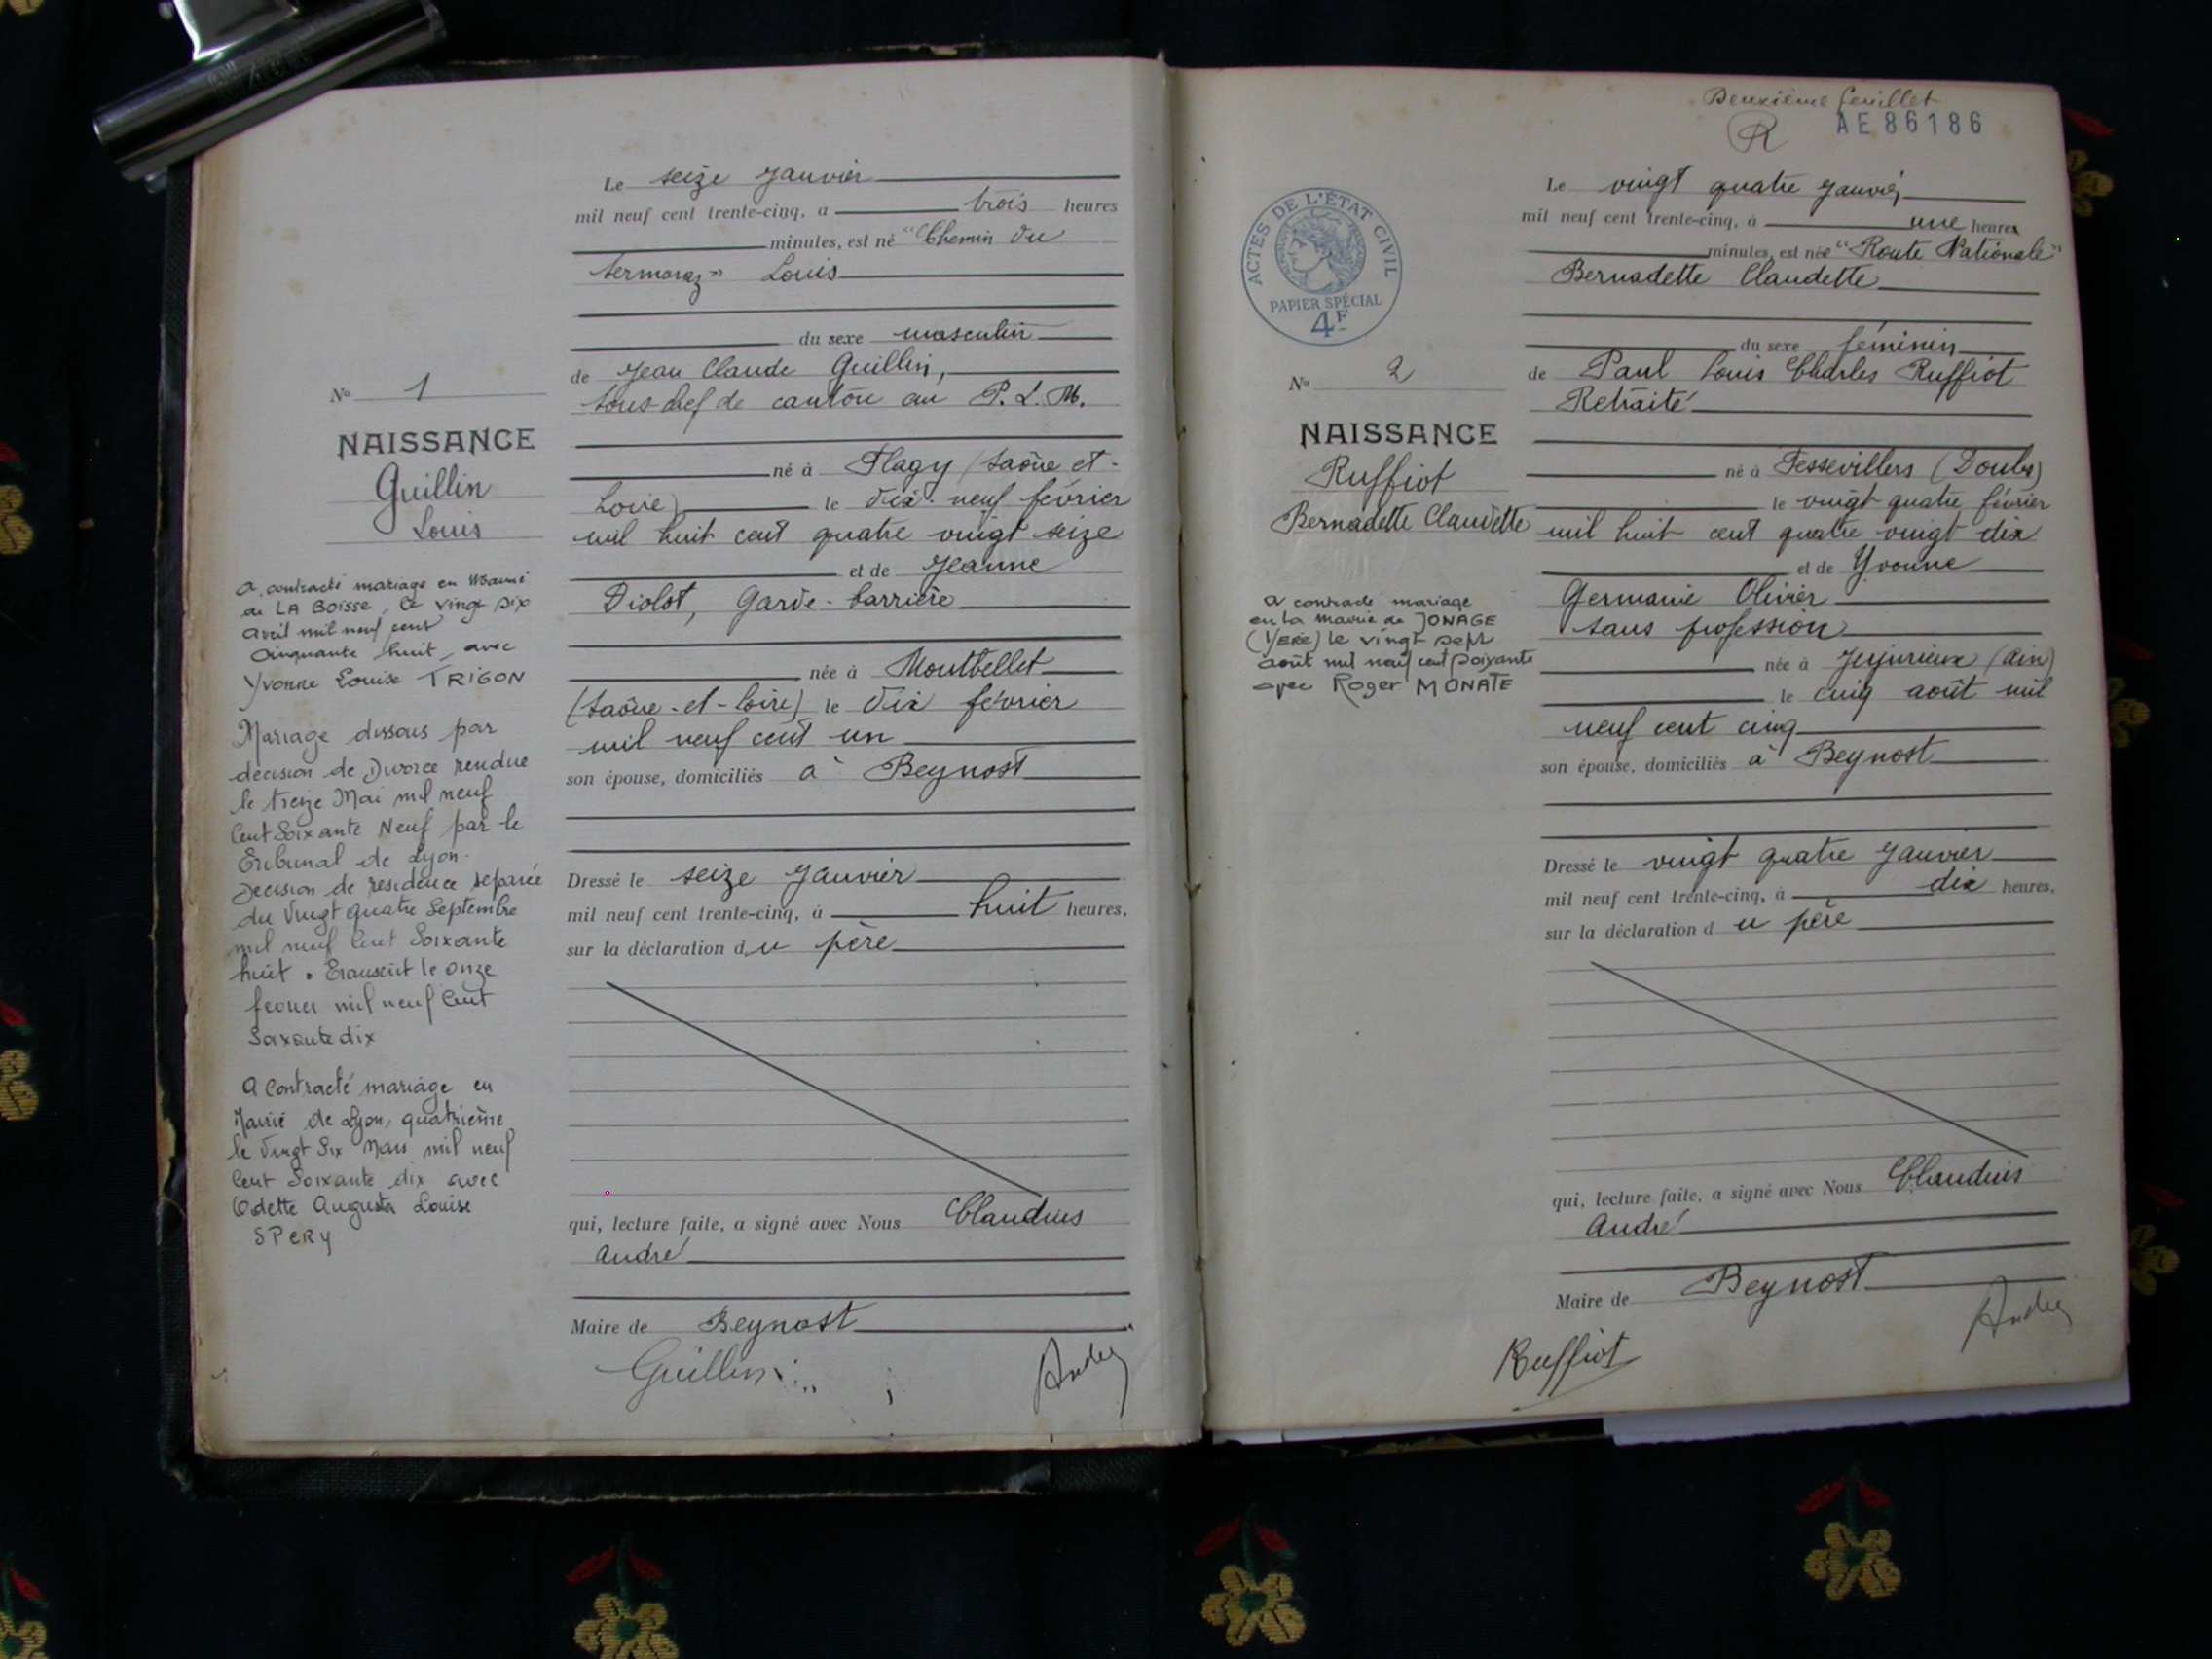 Le seize Janvier
mil neuf cent trente-cinq, à trois heures
minutes, est né "Chemin du
Termoraz" Louis
du sexe masculin
de Jean Claude Guillin,
sous-chef de canton au P.L.M.
né à Flagy (Saône et-
Loire) le dix-neuf février
mil huit cent quatre vingt seize
et de Jeanne
Diolot, Garde-barrière
née à Montbellet
(Saône-et-Loire) le dix février
mil neuf cent un
son épouse, domiciliés à Beynost
Dressé le seize Janvier
mil neuf cent trente-cinq, à huit heures,
sur la déclaration du père
qui, lecture faite, a signé avec Nous Claudius
André
Maire de Beynost
Guillin
André
No 1
NAISSANCE
Guillin
Louis
a contracté mariage en Mairie
de LA BOISSE, le vingt six
avril mil neuf cent
cinquante huit avec
Yvonne Louise TRIGON
Mariage dissous par
décision de Divorce rendue
le treize Mai mil neuf
Cent Soixante Neuf par le
Tribunal de Lyon.
Décision de résidence séparée
du Vingt quatre Septembre
mil neuf Cent Soixante
huit. Transcrit le onze
février mil neuf Cent
Soixante dix
A Contracté mariage en
Mairie de Lyon, quatrième
le Vingt Six Mars mil neuf
Cent Soixante dix avec
Odette Augusta Louise
SPERY
Deuxième feuillet
R AE86186
Le vingt quatre Janvier
mil neuf cent trente-cinq, à une heures
minutes, est née "Route Nationale"
Bernadette Claudette
du sexe féminin
de Paul Louis Charles Ruffiot
Retraité
né à Fessevillers (Doubs)
le vingt quatre février
mil huit cent quatre vingt dix
et de Yvonne
Germaine Olivier
sans profession
née à Jujurieux (Ain)
le cinq août mil
neuf cent cinq
son épouse, domiciliés à Beynost
Dressé le vingt quatre Janvier
mil neuf cent trente-cinq, à dix heures,
sur la déclaration du père
qui, lecture faite, a signé avec Nous Claudius
André
Maire de Beynost
Ruffiot
André
ACTES DE L'ÉTAT CIVIL
PAPIER SPÉCIAL
4F
No 2
NAISSANCE
Ruffiot
Bernadette Claudette
a contracté mariage
en la mairie de JONAGE
(Isère) le vingt sept
août mil neuf cent soixante
avec Roger MONATE